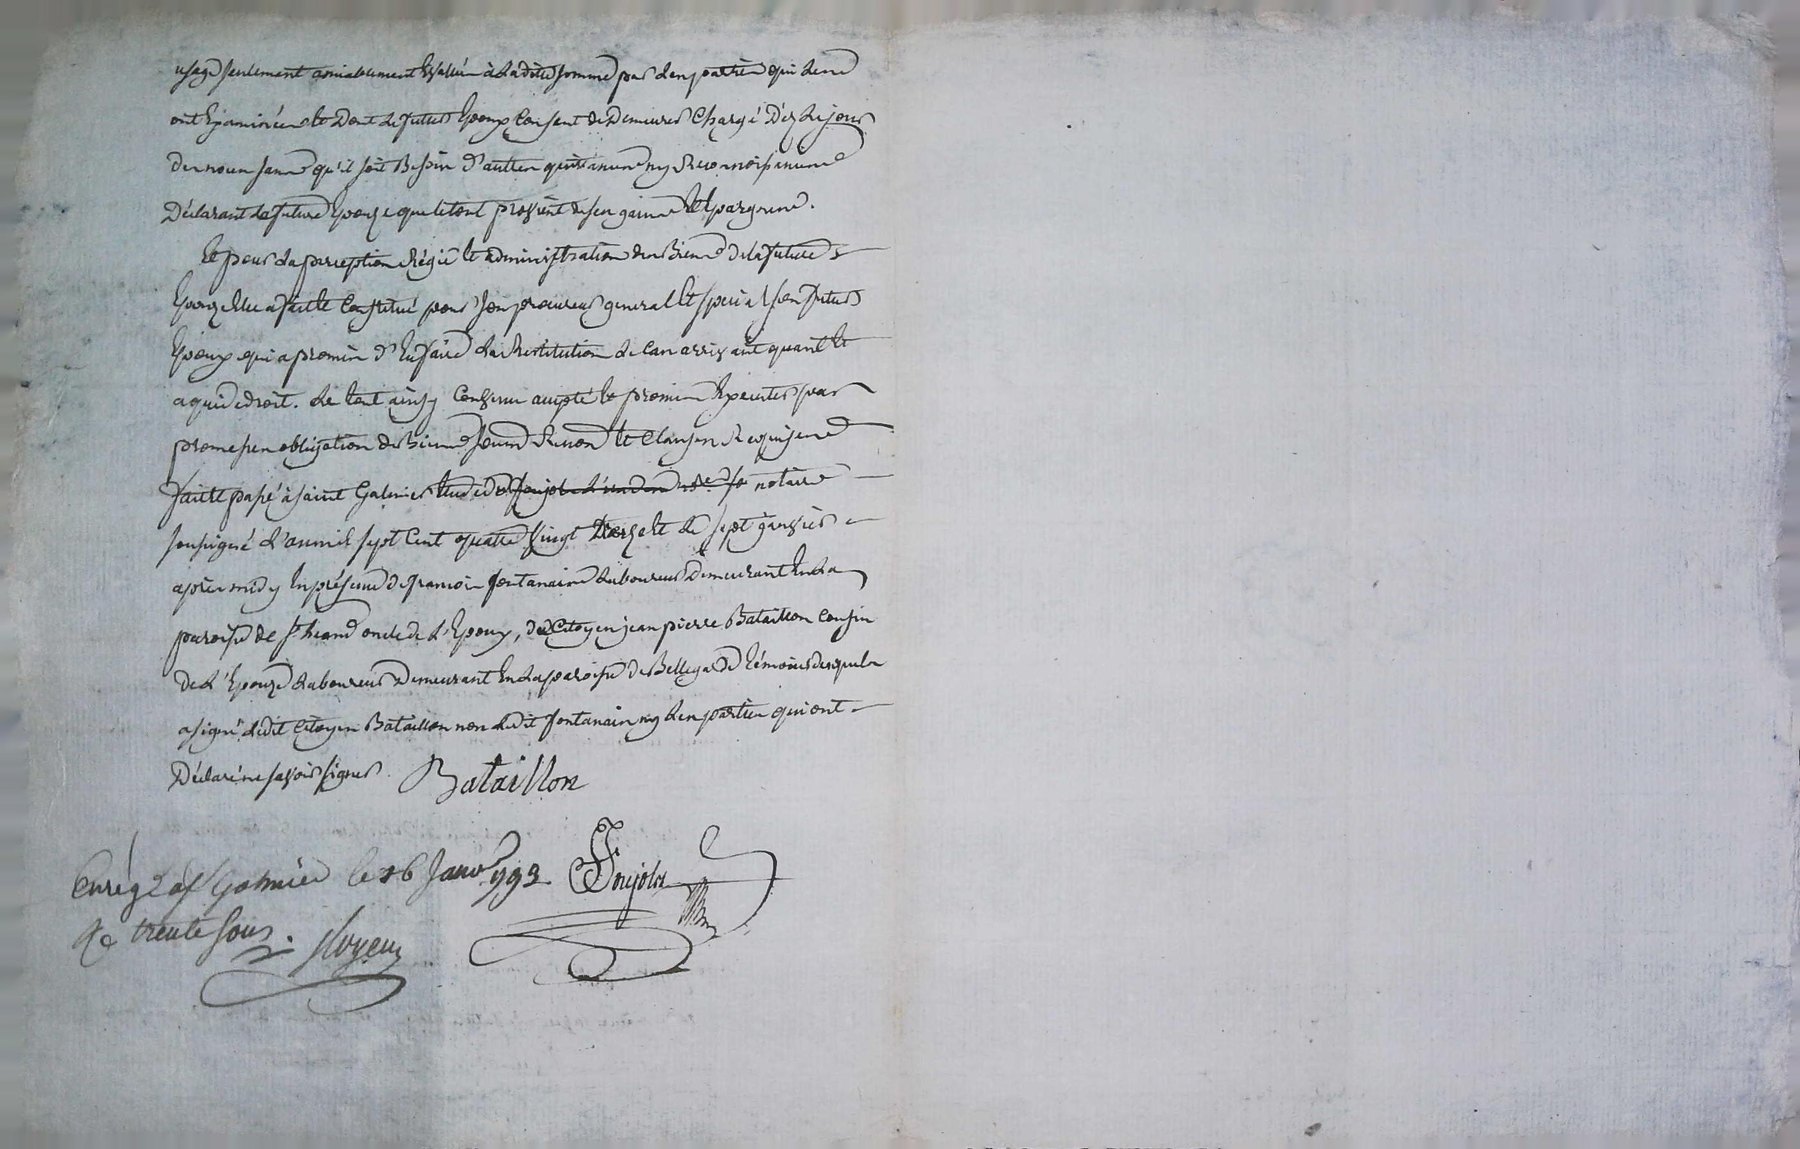 usage seulement amiablement Evalué à ladite somme par les parties qui les
ont Examinées et Dont le futur Epoux Consent de Demeurer Chargé Dès le jour
des noces sans qu'il soit Besoin d'autres quittances ny Reconnoissances
Déclarant la future Epouze que le tout provient de ses gaines et Epargnes.
Et pour la perception Régie et administration des Biens de la future
Epouze Elle a fait et Constitué pour son procureur general Et special son futur
Epoux qui a promis d'En faire la Restitution le Cas arrivant quant et
a qui de droit. Le tout ainsy Convenu accepté et promis Executer par
promesses obligation de Biens soumis Renon et Clauses Requises
fait et passé à saint Galmier Etude notaire
soussigné L'an mil sept Cent quatre Vingt Treize et le sept janvier
après midy En présence de francois fontanaire Laboureur Demeurant En La
paroisse de St heand oncle de L'Epoux, Citoyen jean pierre Bataillon Cousin
de L'Epouze Laboureur Demeurant En La paroisse de Bellegarde Témoins desquels
a signé ledit Citoyen Bataillon non Ledit fontanair ny Les parties qui ont
Déclaré ne savoir signer. Bataillon
Enrég à St Galmier le 16 Janvr 1793
Re trente sous.